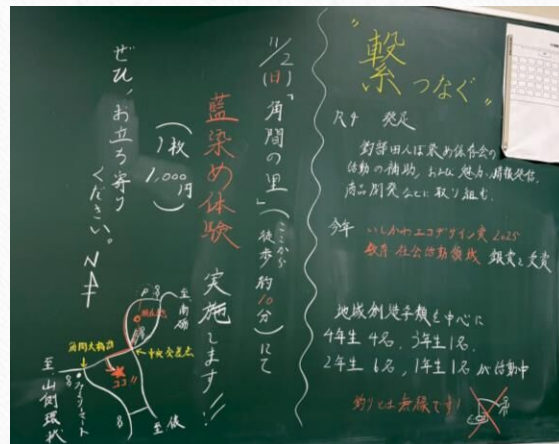 "繋つなぐ"
R4 発足
活動の補助、および魅力、情報発信、
商品開発などに取り組む。
今年 いしかわエコデザイン賞2025
銀賞を受賞
地域創造学類を中心に
4年生 4名、3年生 1名、
2年生 6名、1年生 1名 が活動中
釣りとは無縁です!
11/2(日)「角間の里」(ここから徒歩約10分)にて
藍染め体験 実施してます!!
(1枚 1,000円)
ぜひ、お立ち寄り
ください。
N
至
角間大橋
中央交差点
ココ!!
ファミリーマート
至山側環状